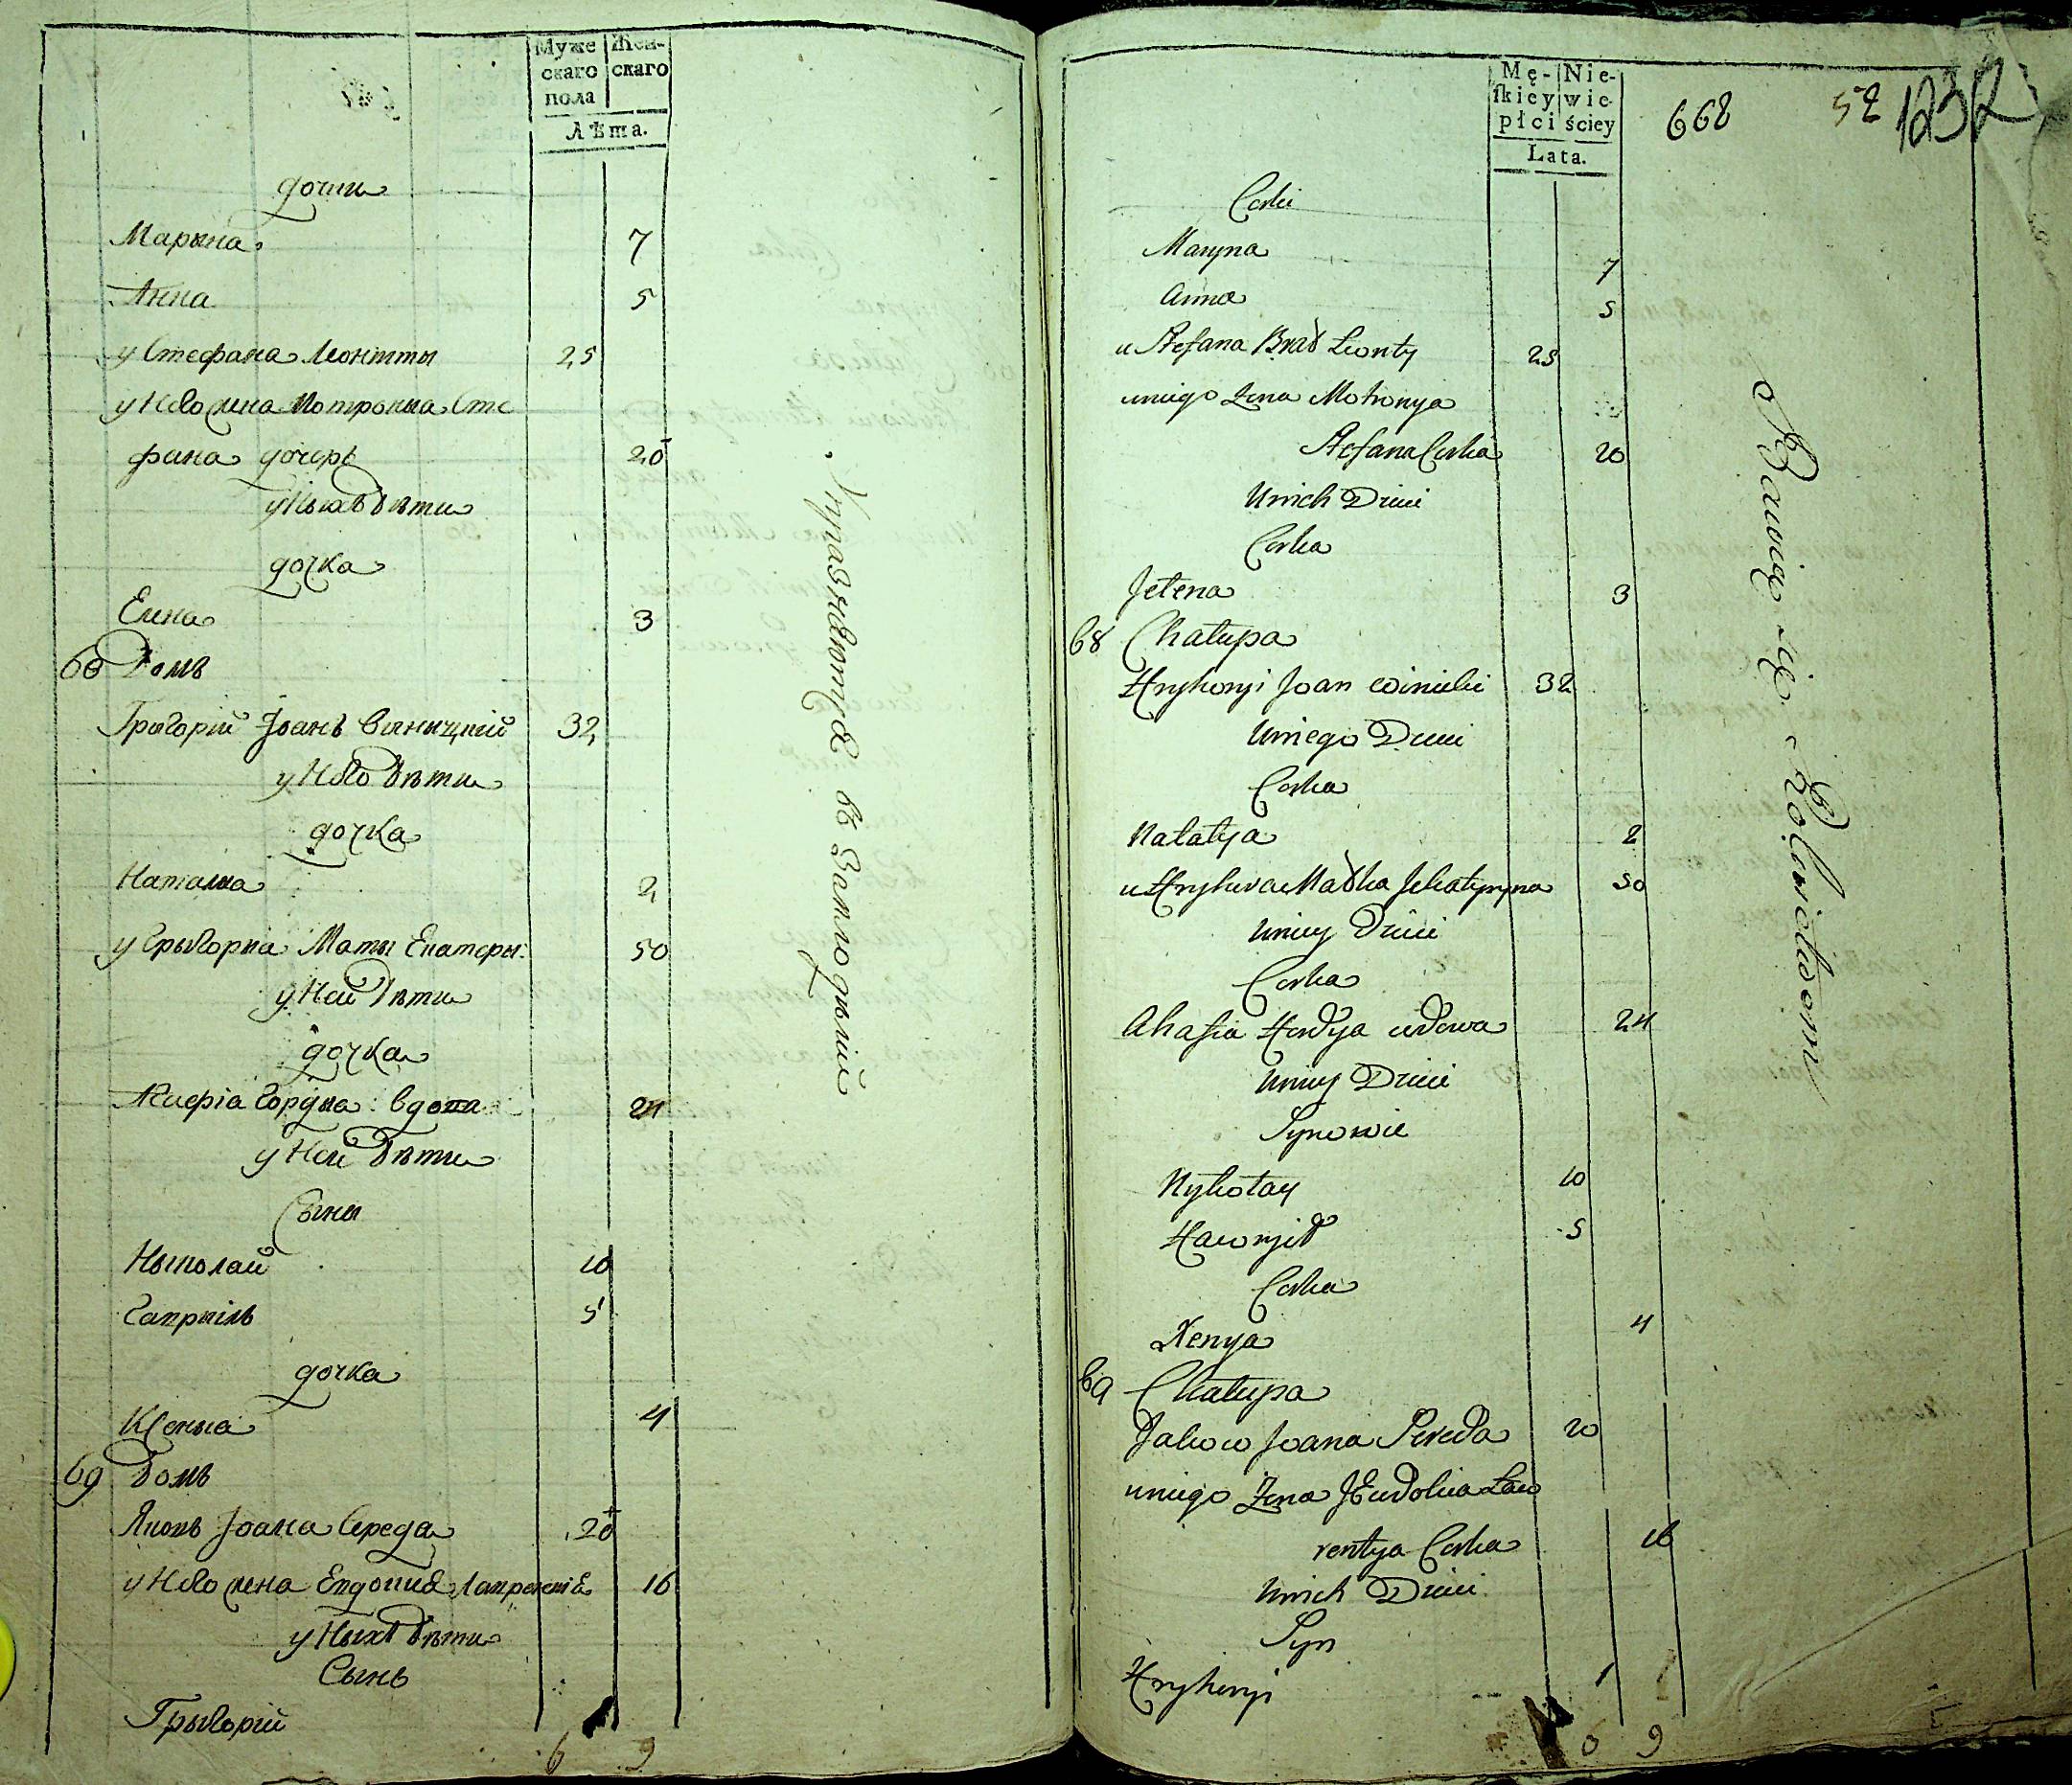 Муже
скаго
пола
Жен-
скаго
Лѣта.
дочки
Марына 7
Анна 5
у Стефана Леонтты 25
у Него жена Мотроныа Сте
фана дочерь 20
у Ныхъ дѣти
дочка
Елена 3
68 Домъ
Грыгорій Іоанъ Виницкій 32
у Него дѣти
дочка
Наталиа 2
у Грыгорка Маты Екатеры: 50
у Ней дѣти
дочка
Гордѣа вдова 24
у Ней дѣти
Сыны
Ныколай 10
Гаврыілъ 5
дочка
Ксеныа 4
69 Домъ
Яковъ Іоана Середа 20
у Него жена Евдокиа Лаврентіѣ 16
у Ныхъ дѣти
Сынъ
Грыгорій 1
6 9
Упражнаются въ Землодѣлій
Mę-
ſkiey
płci
Nie-
wie-
ściey
Lata.
668
52
1232
Corki
Maryna 7
Anna 5
u Stefana Brad Leonty 25
uniego Zena Motronya
Stefana Corka 20
Unich Dzieci
Corka
Jelena 3
68 Chałupa
Hryhoryi Joan Winicki 32
Uniego Dzieci
Corka
Natalya 2
u Hryhora Madka Jekateryna 50
Uniey Dzieci
Corka
Ahafia Hordya wdowa 24
Uniey Dzieci
Synowie
Nykołay 10
Hawryił 5
Corka
Xenya 4
69 Chałupa
Jakow Joana Sereda 20
uniego Zena JEudokia Law
rentya Corka 16
Unich Dzieci
Syn
Hryhoryi 1
6 9
Bawią się Rolnictwem